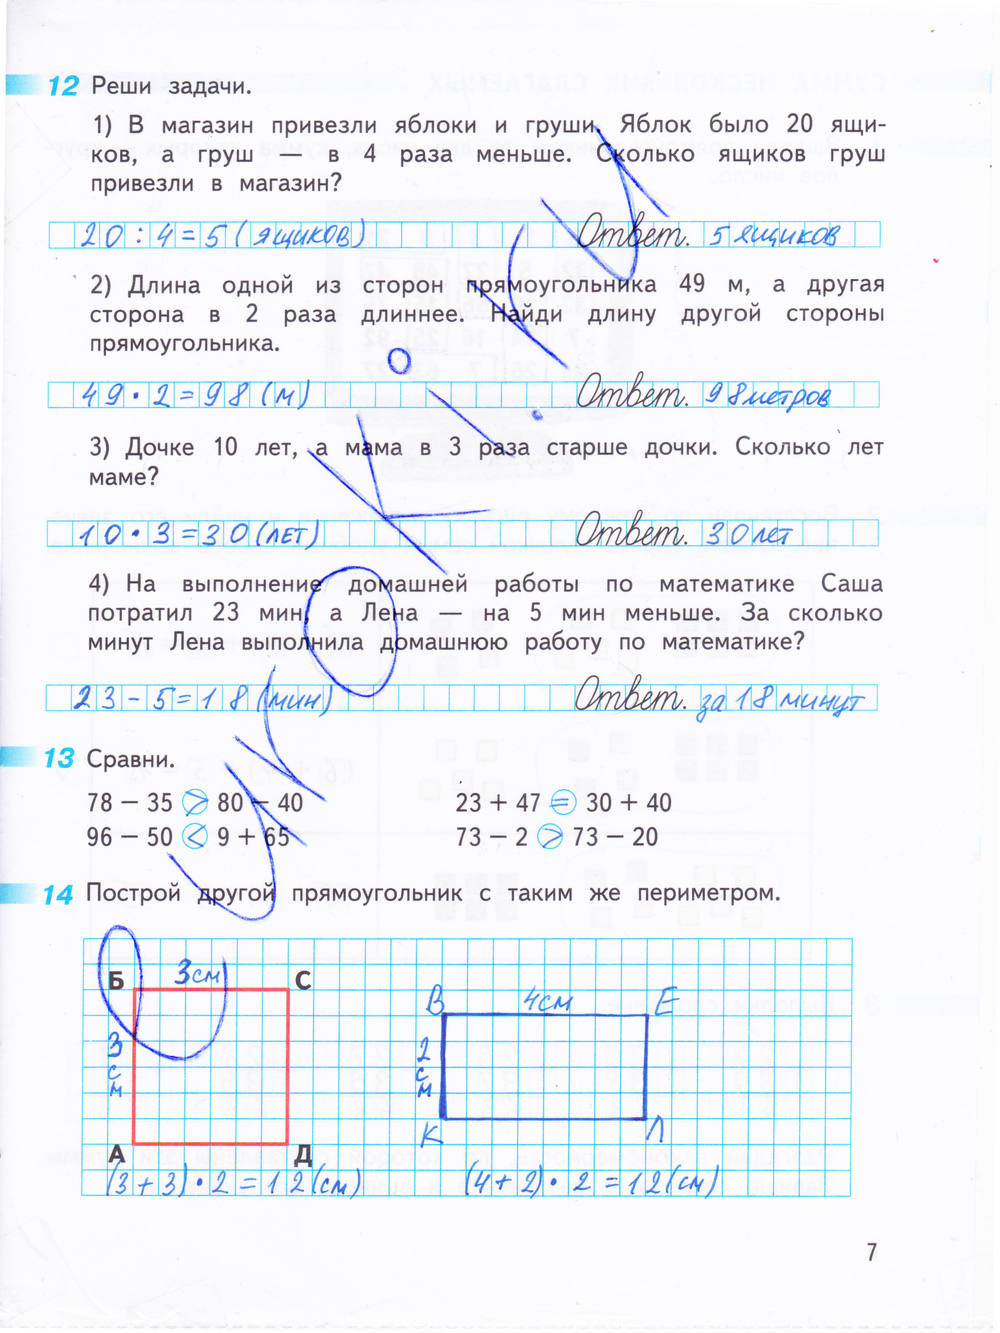 12 Реши задачи.
1) В магазин привезли яблоки и груши. Яблок было 20 ящи-
ков, а груш — в 4 раза меньше. Сколько ящиков груш
привезли в магазин?
20 : 4 = 5 (ящиков) Ответ. 5 ящиков
2) Длина одной из сторон прямоугольника 49 м, а другая
сторона в 2 раза длиннее. Найди длину другой стороны
прямоугольника.
49 · 2 = 98 (м) Ответ. 98 метров
3) Дочке 10 лет, а мама в 3 раза старше дочки. Сколько лет
маме?
10 · 3 = 30 (лет) Ответ. 30 лет
4) На выполнение домашней работы по математике Саша
потратил 23 мин, а Лена — на 5 мин меньше. За сколько
минут Лена выполнила домашнюю работу по математике?
23 - 5 = 18 (мин) Ответ. за 18 минут
13 Сравни.
78 − 35 > 80 − 40 23 + 47 = 30 + 40
96 − 50 < 9 + 65 73 − 2 > 73 − 20
14 Построй другой прямоугольник с таким же периметром.
Б 3см С
В 4см Е
3 см
2 см
К Л
А Д
(3 + 3) · 2 = 12 (см) (4 + 2) · 2 = 12 (см)
7